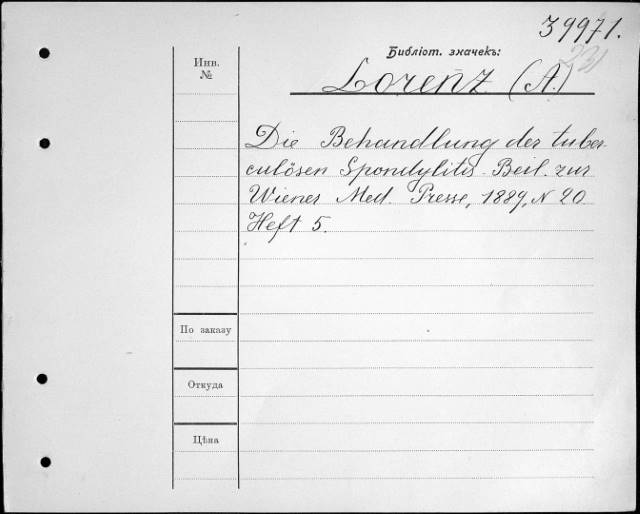 39971.
231
Библіот. значекъ:
Инв.
№
Lorenz (A.)
Die Behandlung der tuber-
culösen Spondylitis. Beil. zur
Wiener Med. Presse, 1889, N 20
Heft 5.
По заказу
Откуда
Цѣна